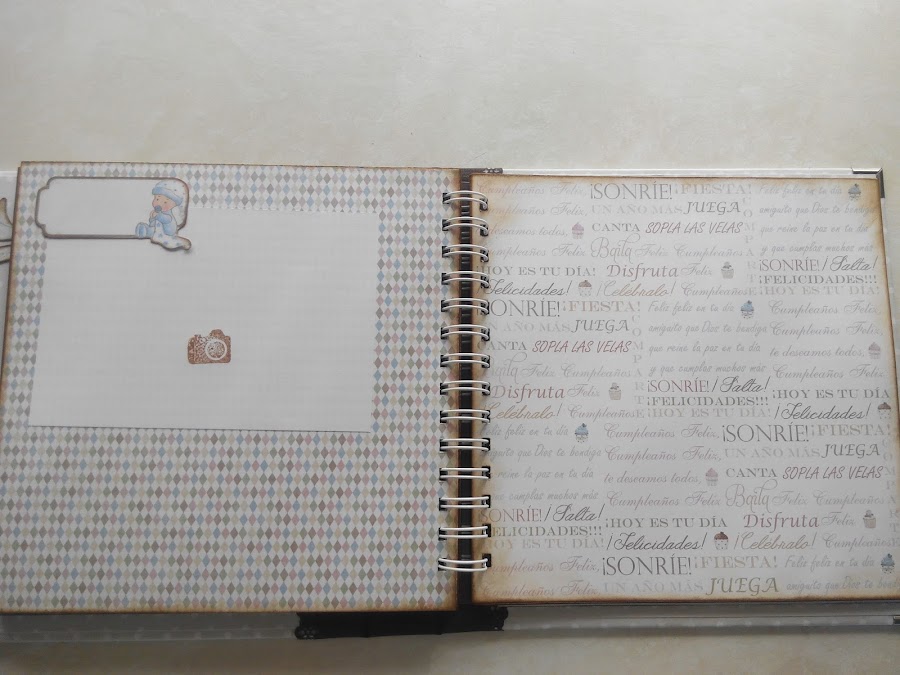 Cumpleaños Feliz, ¡SONRÍE! ¡FIESTA! Feliz feliz en tu día
Cumpleaños Feliz, UN AÑO MÁS JUEGA amiguito que Dios te bendiga
deseamos todos, CANTA SOPLA LAS VELAS que reine la paz en tu día
Cumpleaños Feliz, Baila Feliz Cumpleaños y que cumplas muchos más
¡HOY ES TU DÍA! Disfruta Feliz ¡SONRÍE! ¡Salta!
¡Felicidades! ¡Celébralo! Cumpleaños ¡FELICIDADES!!! ¡HOY ES TU DÍA!
SONRÍE! ¡FIESTA! Feliz feliz en tu día Cumpleaños Feliz,
UN AÑO MÁS JUEGA amiguito que Dios te bendiga Cumpleaños Feliz,
CANTA SOPLA LAS VELAS que reine la paz en tu día te deseamos todos,
Baila Feliz Cumpleaños y que cumplas muchos más Cumpleaños Feliz,
Disfruta Feliz ¡SONRÍE! ¡Salta! ¡HOY ES TU DÍA!
Celébralo! Cumpleaños ¡FELICIDADES!!! ¡HOY ES TU DÍA! ¡Felicidades!
feliz en tu día Cumpleaños Feliz, ¡SONRÍE! ¡FIESTA!
que Dios te bendiga Cumpleaños Feliz, UN AÑO MÁS JUEGA
reine la paz en tu día te deseamos todos, CANTA SOPLA LAS VELAS
cumplas muchos más Cumpleaños Feliz, Baila Feliz Cumpleaños
SONRÍE! ¡Salta! ¡HOY ES TU DÍA Disfruta Feliz
FELICIDADES!!! ¡HOY ES TU DÍA! ¡Felicidades! ¡Celébralo! Cumpleaños
Cumpleaños Feliz, ¡SONRÍE! ¡FIESTA! Feliz feliz en tu día
Cumpleaños Feliz, UN AÑO MÁS JUEGA amiguito que Dios te bendiga